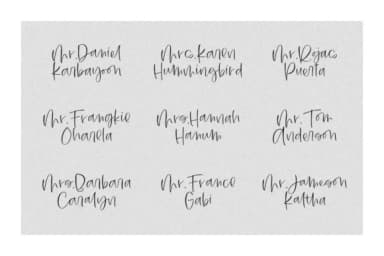 Mr.Daniel
Karbayoon
Mrs.Karen
Hummingbird
Mr.Rojas
Puerta
Mr.Frangkie
Oharela
Mrs.Hannah
Hanum
Mr.Tom
Anderson
Mrs.Barbara
Caralyn
Mr.Franco
Gabi
Mr.Jameson
Kaltha